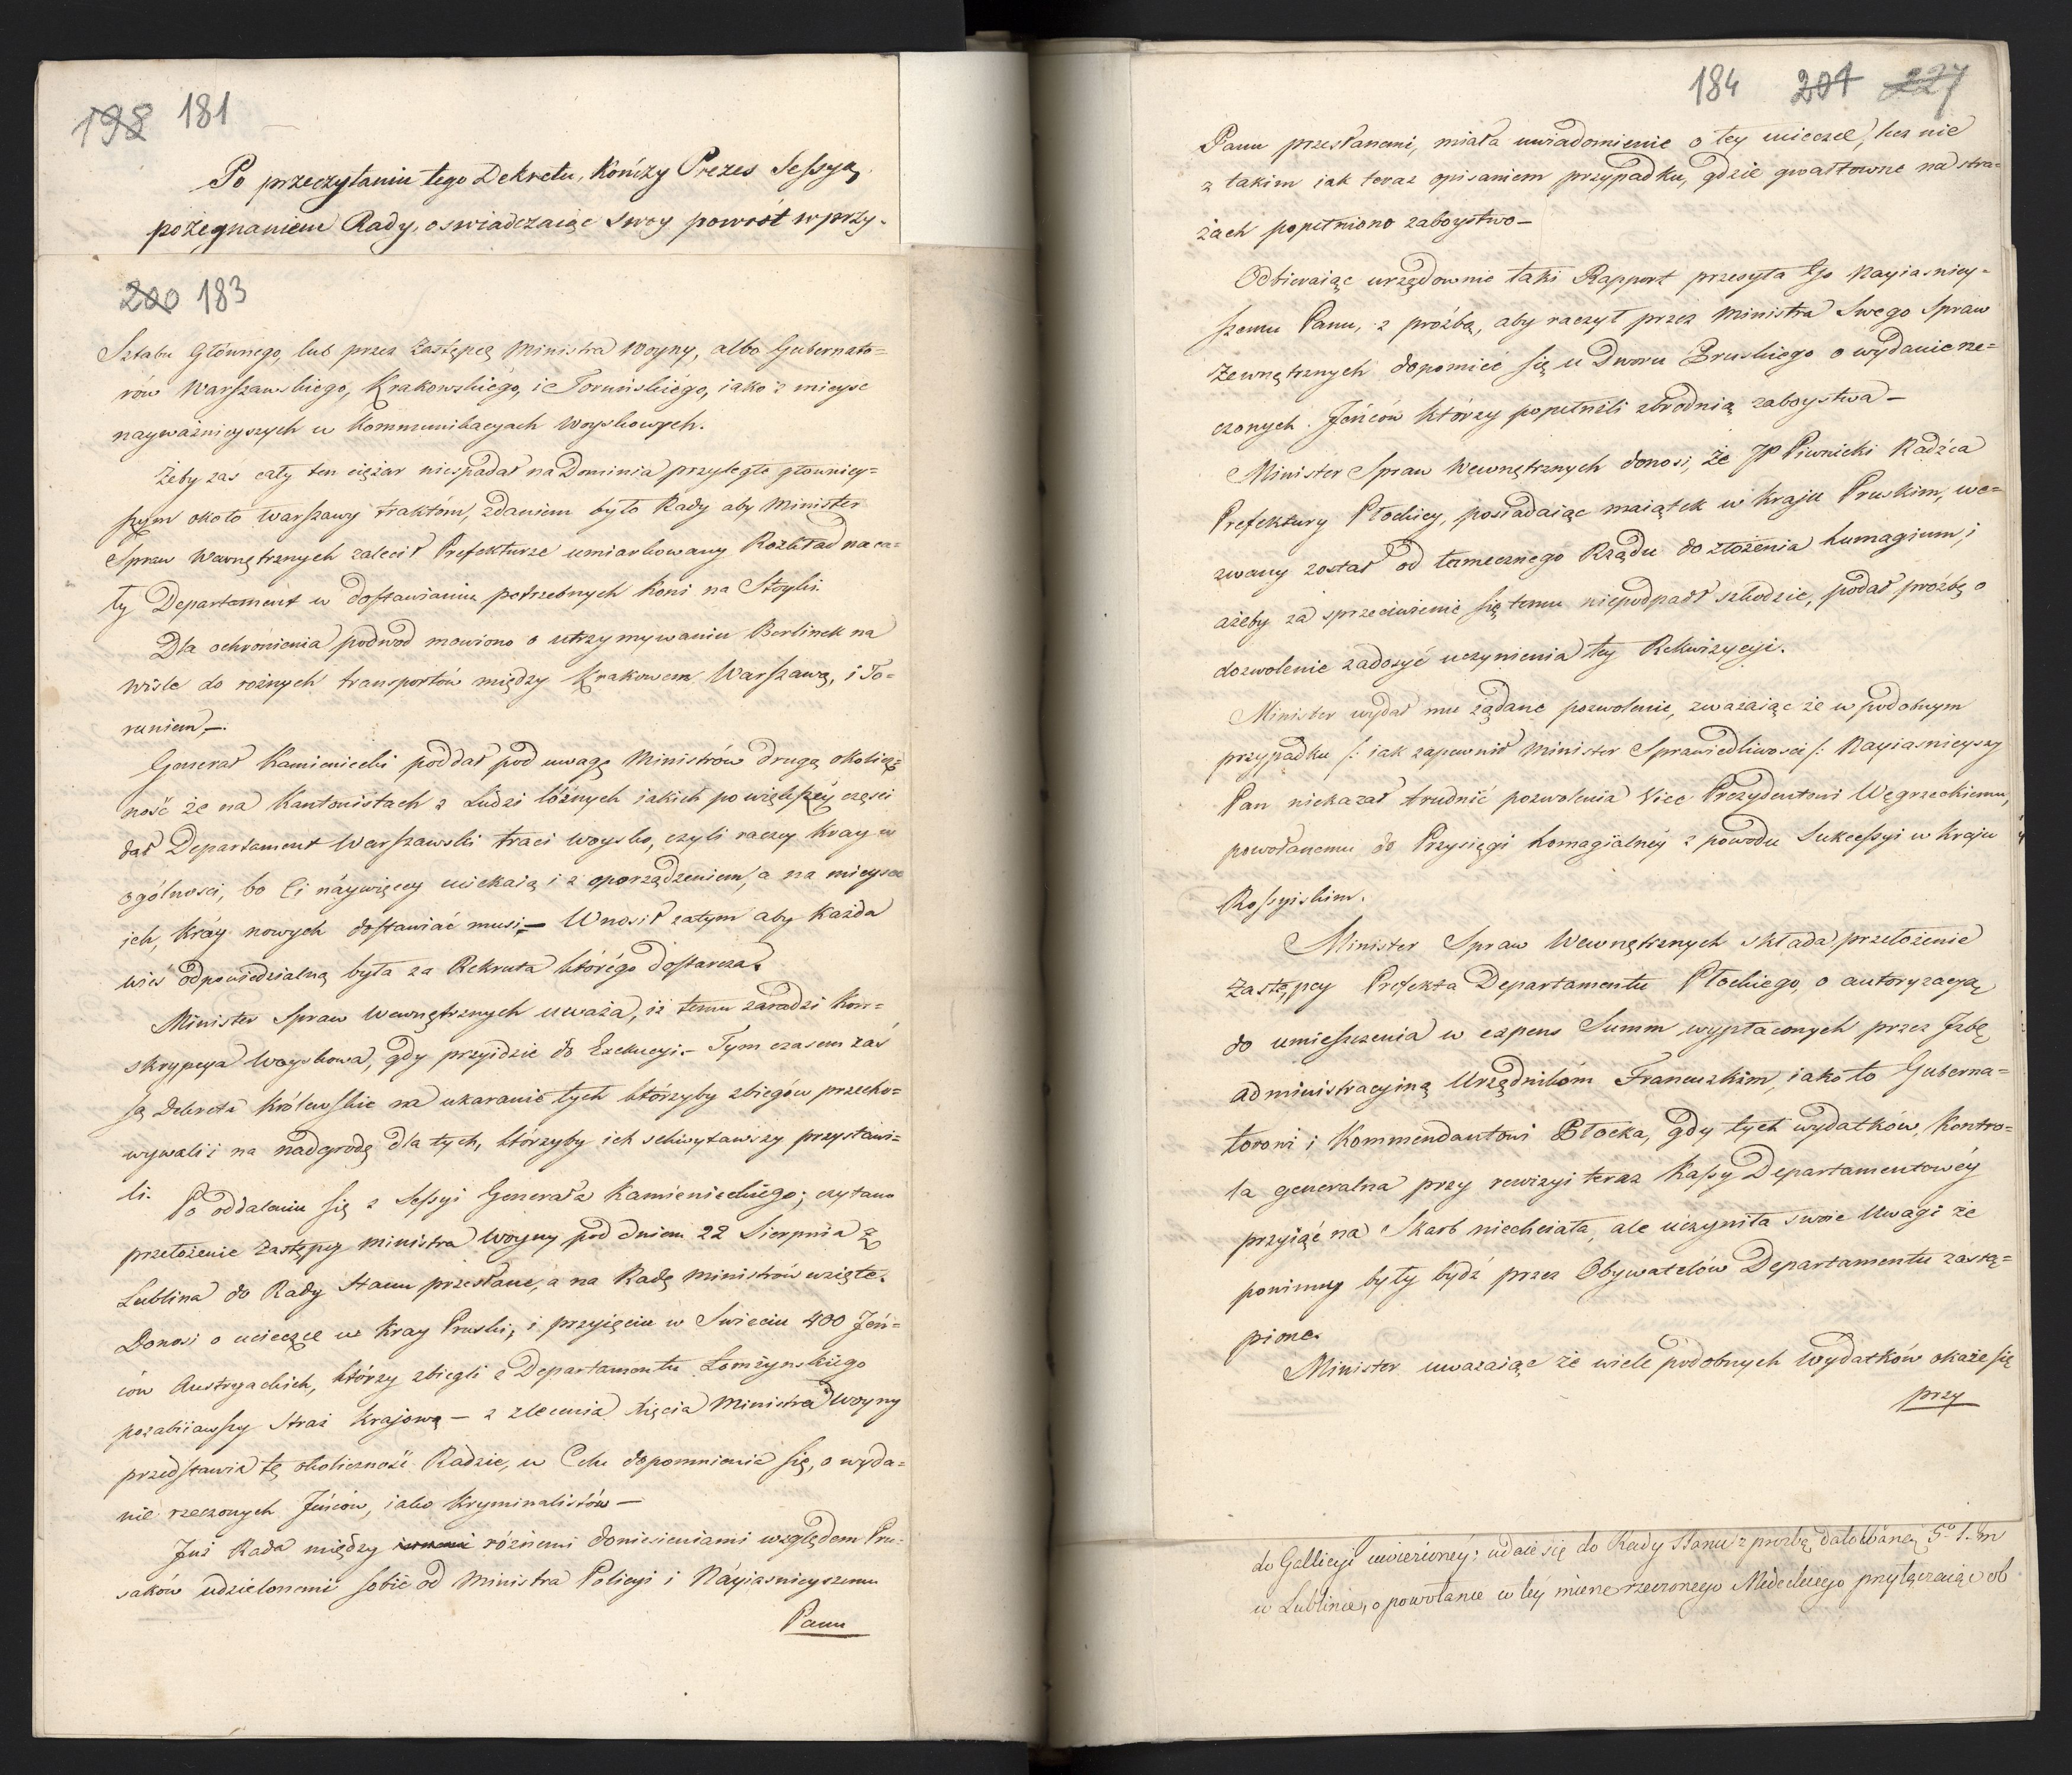 198 181
Po przeczytaniu tego Dekretu, kończy Prezes Sessyą
pożegnaniem Rady, oswiadczaiąc swoy powrót w przy-
200 183
Sztabu Głównego, lub przez Zastępcę Ministra Woyny, albo Gubernato=
rów Warszawskiego, Krakowskiego, i Toruńskiégo, iako z mieysc
nayważnieyszych w Kommunikacyach Woyskowych.
Żeby zaś cały ten ciężar niespadał na Dominia przyległe głowniey=
szym około Warszawy traktóm, zdaniem było Rady aby Minister
Spraw Wewnętrznych zalecił Prefekturze umiarkowany Rozkład na ca=
ły Departament w dostawianiu potrzebnych koni na Stoyki.
Dla ochronienia podwod mowiono o utrzymywaniu Berlinek na
Wiśle do rożnych transportów między Krakowem Warszawą, i To=
runiem,—.
Generał Kamieniecki poddał pod uwagę Ministrów drugą okolicz=
ność że na Kantonistach z Ludzi lóźnych iakich po więkſzéy częsci
dał Departament Warszawski traci woysko, czyli raczey Kray w
ogólnosci, bo Ci náywięcey uciekaią i z oporządzeniem, a na mieysce
ich, Kráy nowych dostawiać musi,— Wnosił zatym aby każda
wieś odpowiedzialną była za Rekruta którégo dostarcza.
Minister Spraw Wewnętrznych uważa, iż temu zaradzi Kon=
skrypcya Woyskowa, gdy przyidzie do Exekucyi.- Tym czasem zaś
są Dekreta Królewskie na ukaranie tych którzyby zbiegów przecho=
wywali i na nadgrodę dla tych, którzyby ich schwytawszy przystawi=
li.
Po oddaleniu się z Sessyi Generała Kamienieckiégo; czytano
przełożenie Zastępcy Ministra Woyny pod dniem 22 Sierpnia z
Lublina do Rady Stanu przesłane, a na Radę Ministrów wzięte.
Donosi o ucieczce w Kray Pruski, i przyięciu w Swieciu 400 Jeń=
ców Austryackich, którzy zbiegli z Departamentu Łomżynskiego
pozabiiawszy Straż Krajową — z zlecenia Xięcia Ministra Woyny
przedstawia tę okoliczność Radzie, w Celu dopomnienia się, o wyda=
nie rzeczonych Jeńców, iako Kryminalistów—
Już Rada między różnemi doniesieniami względem Pru=
saków udzielonemi sobie od Ministra Policyi i Náyiasnieyszemu
Panu
184 201 227
Panu przesłanemi, miała uwiadomienie o tey ucieczce, lecz nie
z takim iak teraz opisaniem przypadku, gdzie gwałtowne na stra=
żach popełniono zaboystwo—
Odbieraiąc urzędownie taki Rapport przesyła Go Nayiasniey=
szemu Panu, z proźbą, aby raczył przez Ministra Swego Spraw
Zewnętrznych dopomieć się u Dworu Pruskiego o wydanie rze=
czonych Jeńców którzy popełnili zbrodnią zaboystwa—
Minister Spraw Wewnętrznych donosi, że JP Piwnicki Radźca
Prefektury Płockiey, posiadaiąc maiątek w kraju Pruskim, we=
zwany został od tamecznego Rządu do złożenia humagium, i
ażeby za sprzeciwienie się temu niepodpadł szkodzie, podał proźbę o
dozwolenie zadosyć uczynienia tey Rekwizycyi.
Minister wydał mu żądane pozwolenie, zważaiąc że w podobnym
przypadku /: iak zapewnił Minister Sprawiedliwosci /: Nayiasnieyszy
Pan niekazał trudnić pozwolenia Vice Prezydentowi Węgrzeckiemu,
powołanemu do Przysięgi homagialnéy z powodu Sukcessyi w kraju
Rossyiskim.
Minister Spraw Wewnętrznych składa przełożenie
Zastępcy Prefekta Departamentu Płockiego, o autoryzacyą
do umieszczenia w expens Summ wypłaconych przez Jzbę
administracyiną Urzędnikóm Francuzkim, iako to Guberna=
torowi i Kommendantowi Płocka, gdy tych wydatków, Kontro=
la generalna przy rewizyi teraz Kassy Departamentowéy
przyiąć na Skarb niechciała, ale uczyniła swoie Uwagi że
powinny były bydź przez Obywatelów Departamentu zastą=
pione.
Minister uważaiąc że wiele podobnych wydatków okaże się
przy
do Gallicyi uwieziony: udaie się do Rady Stanu z prozbą datowáną 5° 7.
w Lublinie, o powołanie w téy mierze rzeczonego Medeckiego przyłączaiąc ob